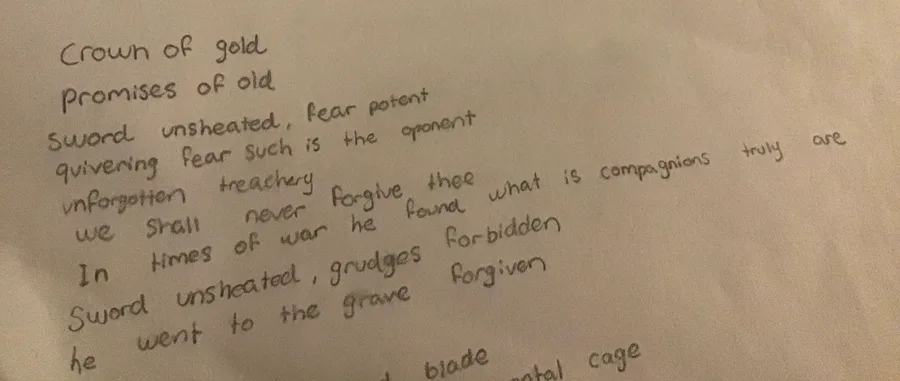 Crown of gold
Promises of old
Sword unsheated, fear potent
quivering fear such is the oponent
unforgotten treachery
we shall never forgive thee
In times of war he found what is compagnions truly are
Sword unsheated, grudges forbidden
he went to the grave forgiven
blade
cage